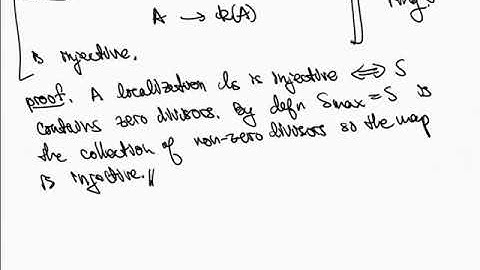 A → k(A)
ring
is injective.
proof. A localization ls is injective ⟺ S
contains zero divisors. By defn Smax = S is
the collection of non-zero divisors so the map
is injective. //